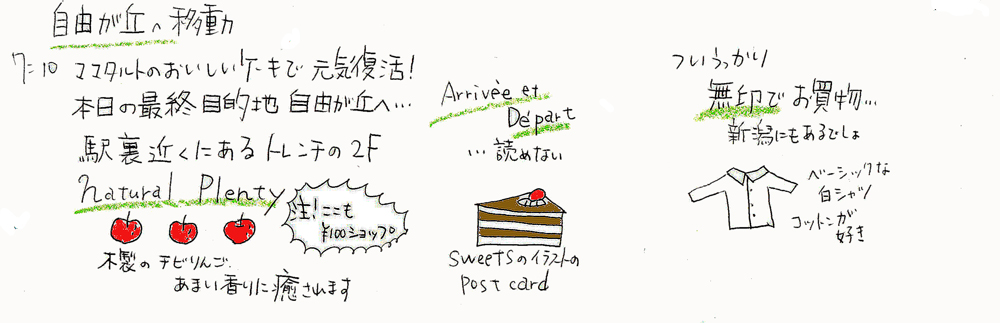 自由が丘へ移動
7:10 ママタルトのおいしいケーキで元気復活!
本日の最終目的地 自由が丘へ…
駅裏近くにあるトレンチの2F
natural Plenty
注!ここも
¥100ショップ。
木製のチビりんご。
あまい香りに癒されます
Arrivée et
Départ
…読めない
sweetsのイラストの
post card
ついうっかり
無印でお買物…
新潟にもあるでしょ
ベーシックな
白シャツ
コットンが
好き